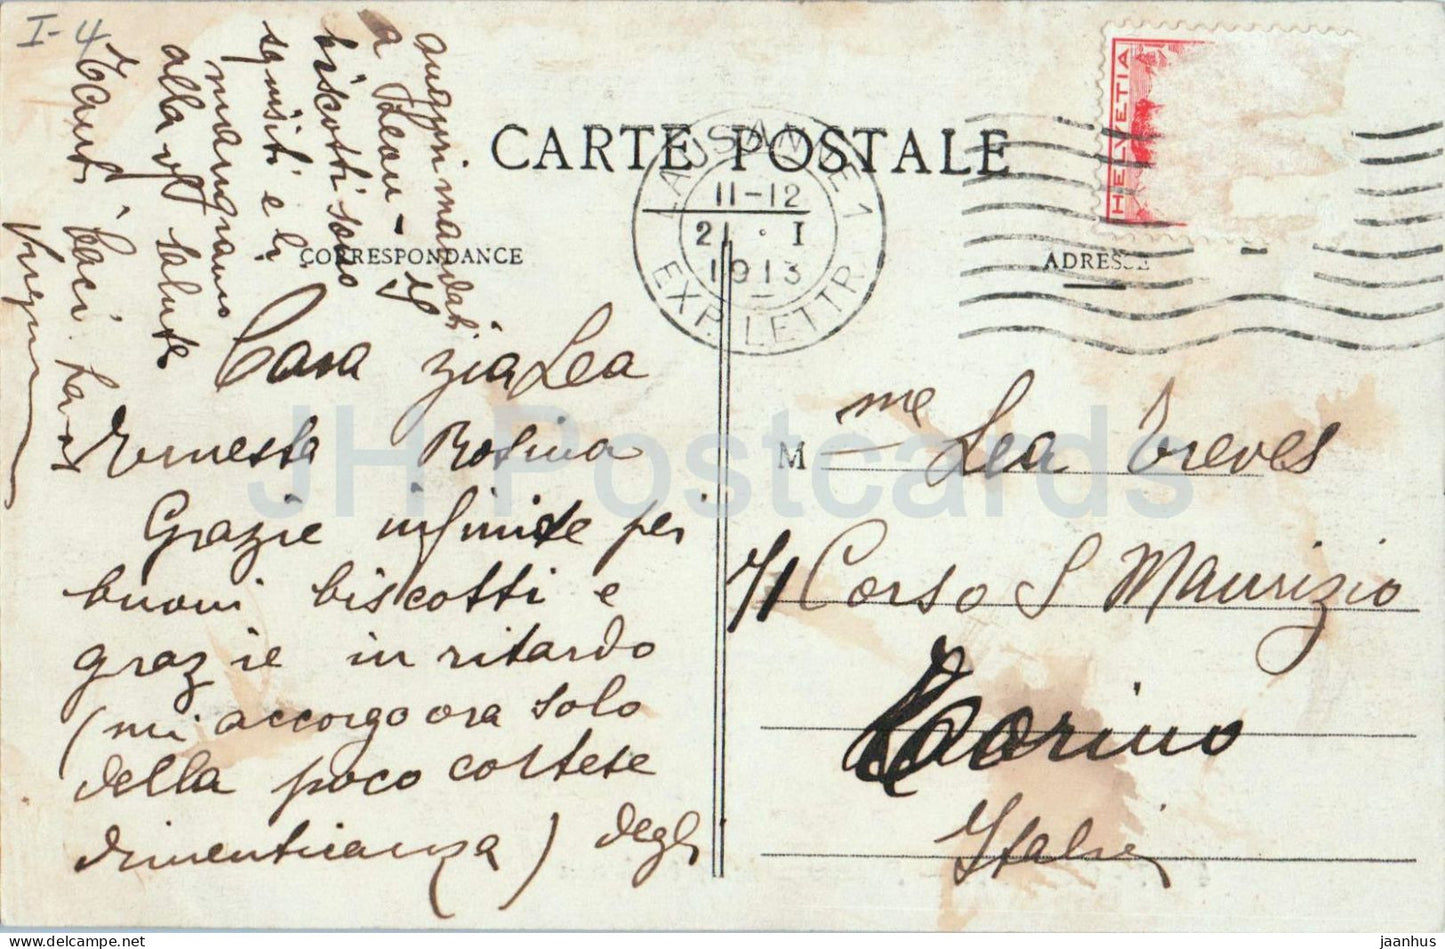 I-4
CARTE POSTALE
CORRESPONDANCE
ADRESSE
HELVETIA
LAUSANNE 1
11-12
21·I
1913
EXP. LETTR.
Cara zia Lea
Ernesta Rosina
Grazie infinite per
buoni biscotti e
grazie in ritardo
(mi accorgo ora solo
della poco cortese
dimenticanza) degli
auguri mandati
a
biscotti sono
squisiti e li
mangiamo
alla salute
Tanti baci
M me Lea Treves
71 Corso S Maurizio
Torino
Italie
JH Postcards
delcampe.net
jaanhus